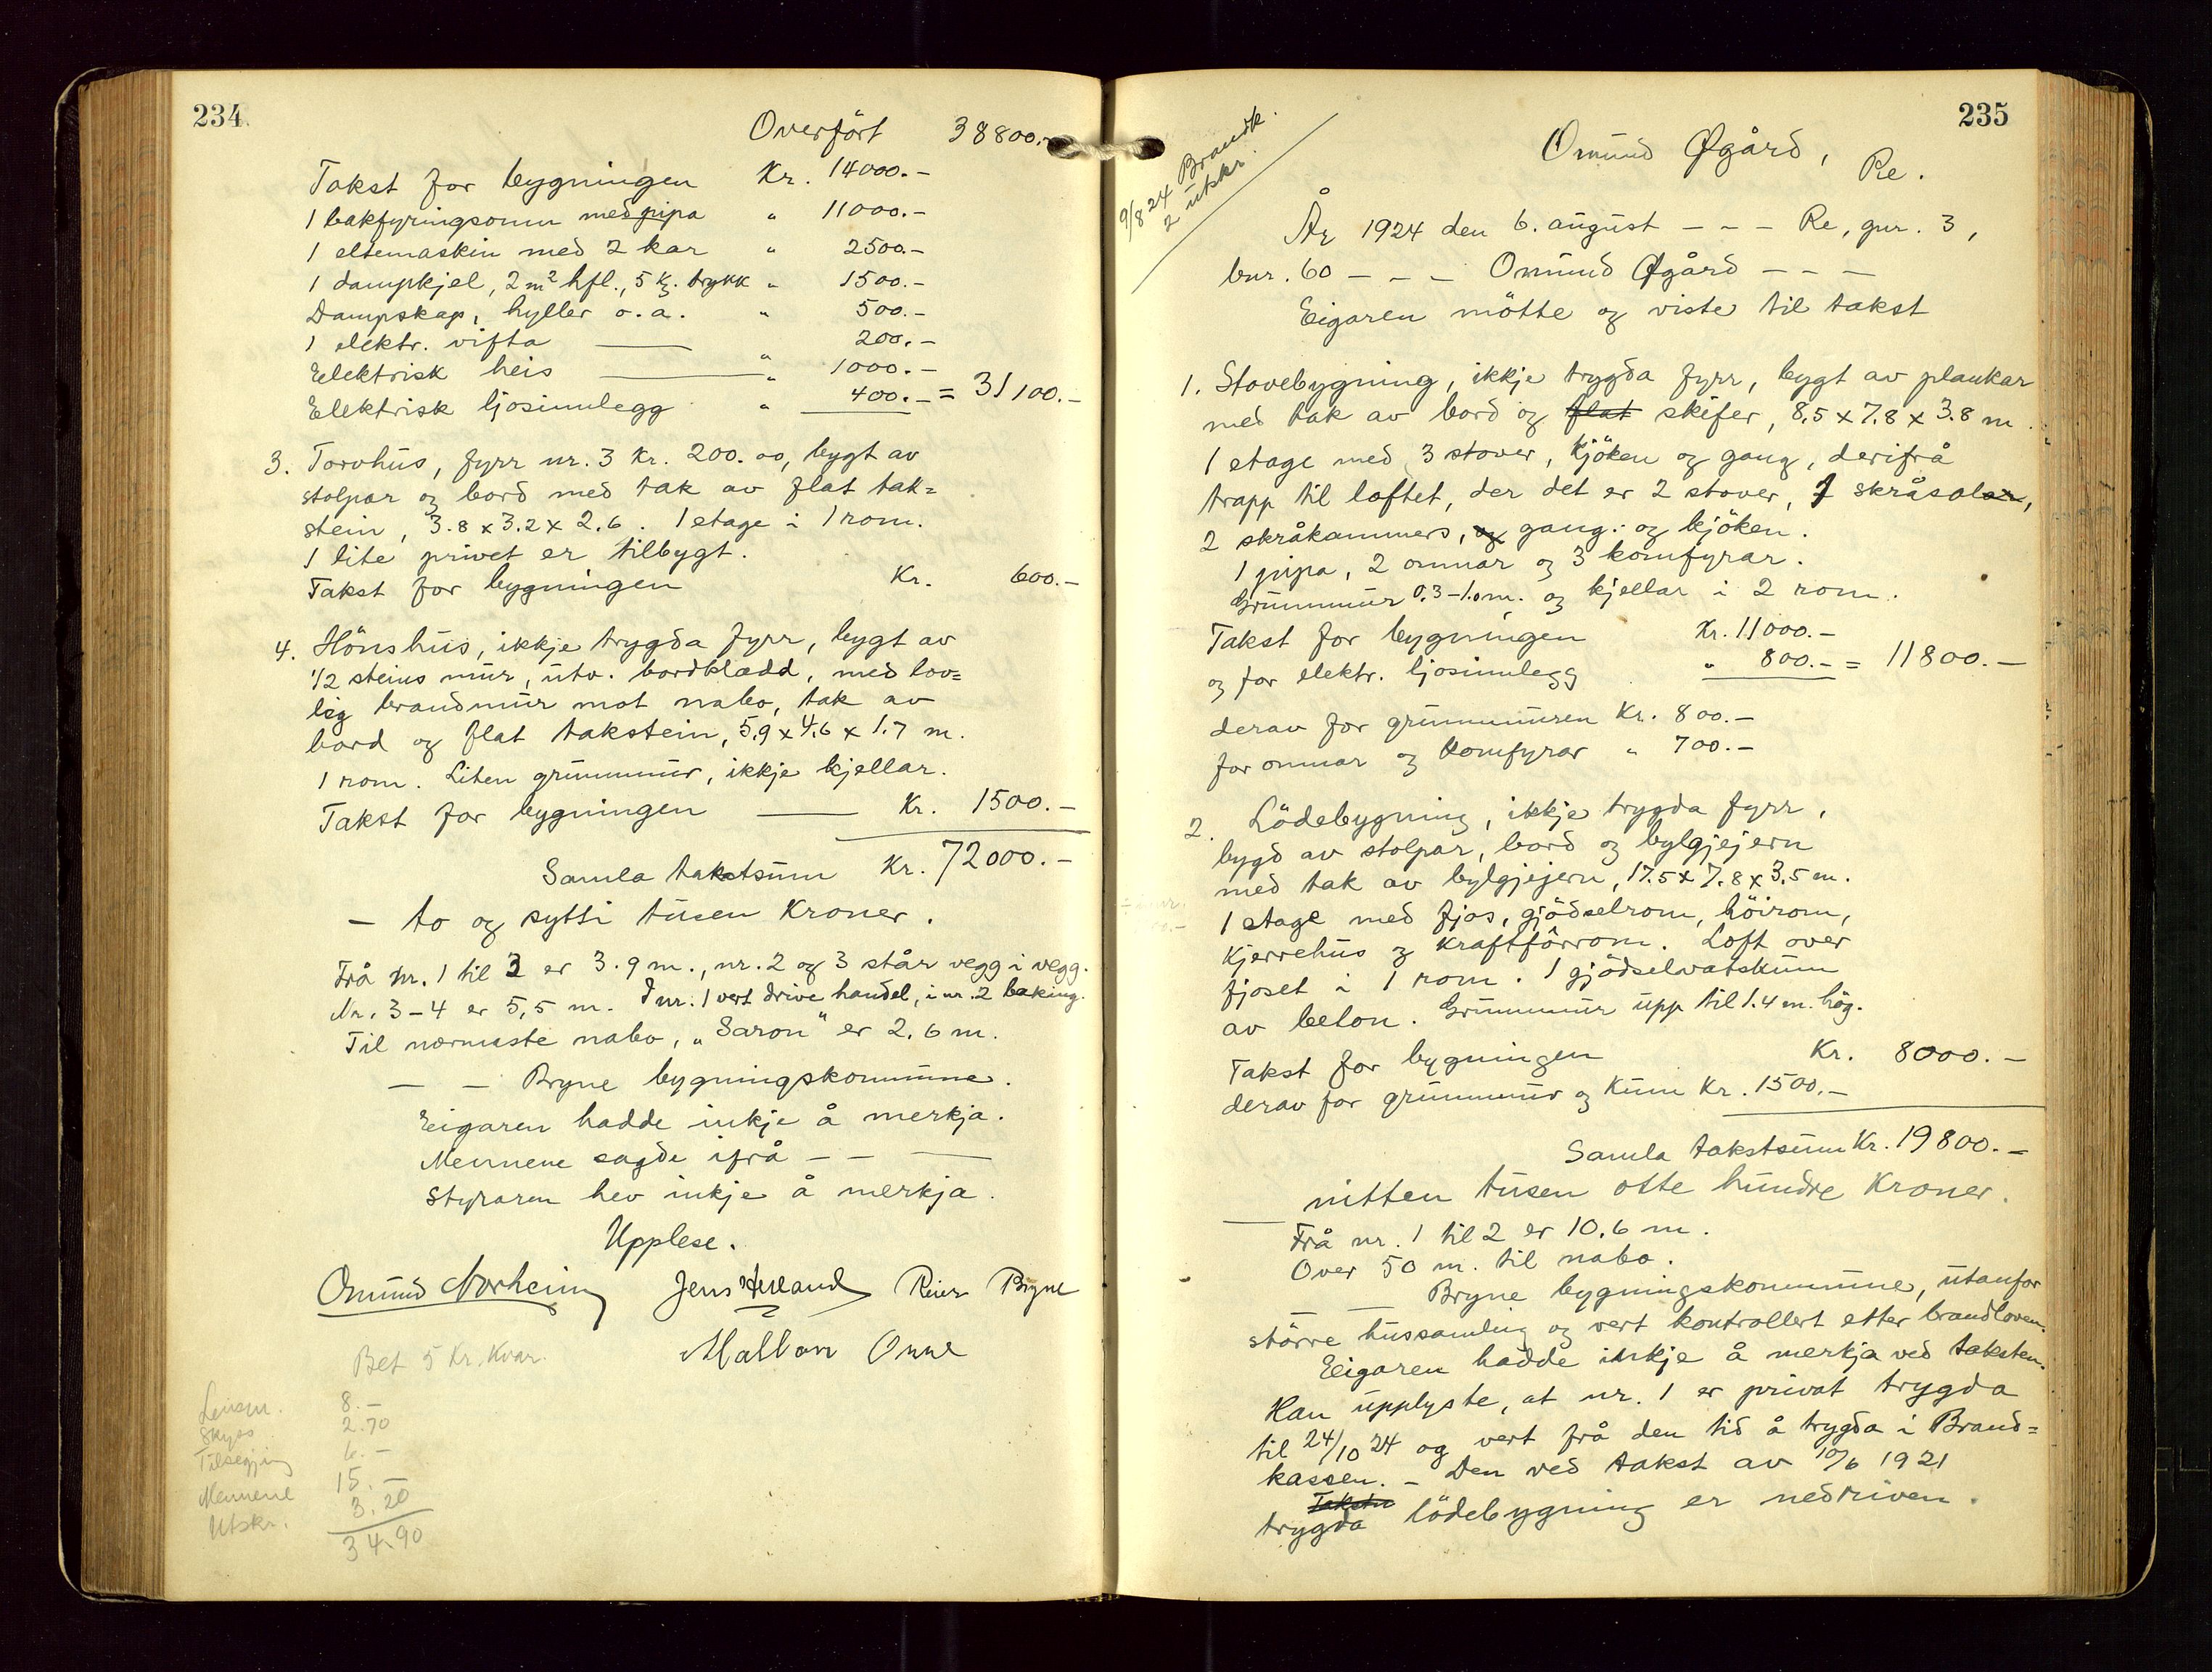 234
Overfört 38800.-
Takst for bygningen Kr. 14000.-
1 bakfyringsomn med pipa " 11000.-
1 eltemaskin med 2 kar " 2500.-
1 dampkjel, 2 m² hfl., 5 kg. trykk " 1500.-
Dampskap, hyller o. a. " 500.-
1 elektr. vifta 200.-
Elektrisk heis " 1000.-
Elektrisk ljosinnlegg " 400.- = 31100.-
3. Torvhus, fyrr nr. 3 Kr. 200.00, bygt av
stolpar og bord med tak av flat tak=
stein, 3.8 x 3.2 x 2.6. 1 etage i 1 rom.
1 lite privet er tilbygt.
Takst for bygningen Kr. 600.-
4. Hönshus, ikkje trygda fyrr, bygt av
1/2 steins mur, utv. bordklædd, med lov=
leg brandmur mot nabo, tak av
bord og flat takstein, 5.9 x 4.6 x 1.7 m.
1 rom. Liten grunnmur, ikkje kjellar.
Takst for bygningen Kr. 1500.-
Samla takstsum Kr. 72000.-
- to og sytti tusen Kroner.
Frå nr. 1 til 2 er 3.9 m., nr. 2 og 3 står vegg i vegg.
Nr. 3-4 er 5,5 m. I nr. 1 vert drive handel, i nr. 2 baking.
Til nærmaste nabo, "Saron" er 2.6 m.
- - Bryne bygningskommune.
Eigaren hadde inkje å merkja.
Mennene sagde ifrå - - -
Styraren hev inkje å merkja.
Upplese.
Omund Norheim Jens Herland Reier Bryne
Mallon Onne
Bet 5 Kr. Kvar.
Lensm. 8.-
Skyss 2.70
Tilsegjing 6.-
Mennene 15.-
Utskr. 3.20
34.90
235
9/8 24 Brandk.
2 utskr.
Omund Øgård,
Re.
År 1924 den 6. august - - - Re, gnr. 3,
bnr. 60 - - - Omund Øgård - - -
Eigaren mötte og viste til takst
1. Stovebygning, ikkje trygda fyrr, bygt av plankar
med tak av bord og flat skifer, 8.5 x 7.8 x 3.8 m.
1 etage med 3 stover, kjöken og gang, derifrå
trapp til loftet, der det er 2 stover, 1 skråsaler,
2 skråkammers, og gang. og kjöken.
1 pipa, 2 omnar og 3 komfyrar.
Grunnmur 0.3-1.0 m. og kjellar i 2 rom.
Takst for bygningen Kr. 11000.-
og for elektr. ljosinnlegg " 800.- = 11800.-
derav for grunnmuren Kr. 800.-
for omnar og komfyrar " 700.-
2. Lödebygning, ikkje trygda fyrr,
bygd av stolpar, bord og bylgjejern
med tak av bylgjejern, 17.5 x 7.8 x 3.5 m.
1 etage med fjos, gjödselrom, höirom,
kjerrehus og kraftfôrrom. Loft over
fjoset i 1 rom. 1 gjödselvatskum
av beton. Grunnmur upp til 1.4 m. hög.
Takst for bygningen Kr. 8000.-
derav for grunnmur og kum Kr. 1500.-
Samla takstsum Kr. 19800.-
nitten tusen otte hundre Kroner.
Frå nr. 1 til 2 er 10.6 m.
Over 50 m. til nabo.
Bryne bygningskommune, utanfor
större hussamling og vert kontrollert etter brandloven.
Eigaren hadde inkje å merkja ved taksten.
Han upplyste, at nr. 1 er privat trygda
til 24/10 24 og vert frå den tid å trygda i Brand=
kassen. - Den ved takst av 10/6 1921
Takstn
trygda lödebygning er nedriven.